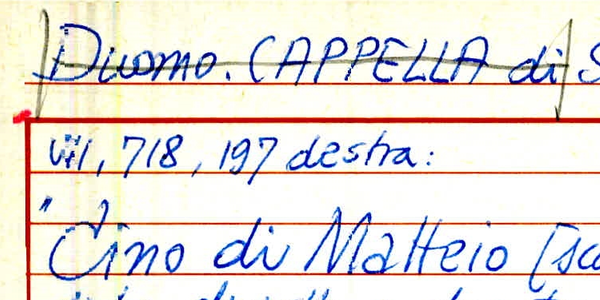 Duomo. CAPPELLA di S
VII, 718, 197 destra:
"Cino di Matteio [sc